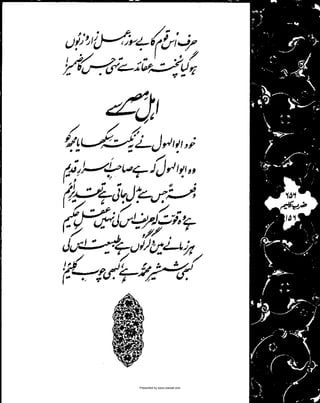 حرف اس قوم کا بے سوز، عمل زار و زبوں
ہو گیا پختہ عقائد سے تہی جس کا ضمیر!
اہلِ مصر سے
خود ابوالہول نے یہ نکتہ سکھایا مجھ کو
وہ ابوالہول کہ ہے صاحبِ اسرارِ قدیم
دفعۃً جس سے بدل جاتی ہے تقدیرِ اُمم
ہے وہ قوت کہ حریف اس کی نہیں عقلِ حکیم
ہر زمانے میں دگرگوں ہے طبیعت اس کی
کبھی شمشیرِ محمدؐ ہے، کبھی چوبِ کلیم!
۶۵۶
ضربِ کلیم
۱۵۶